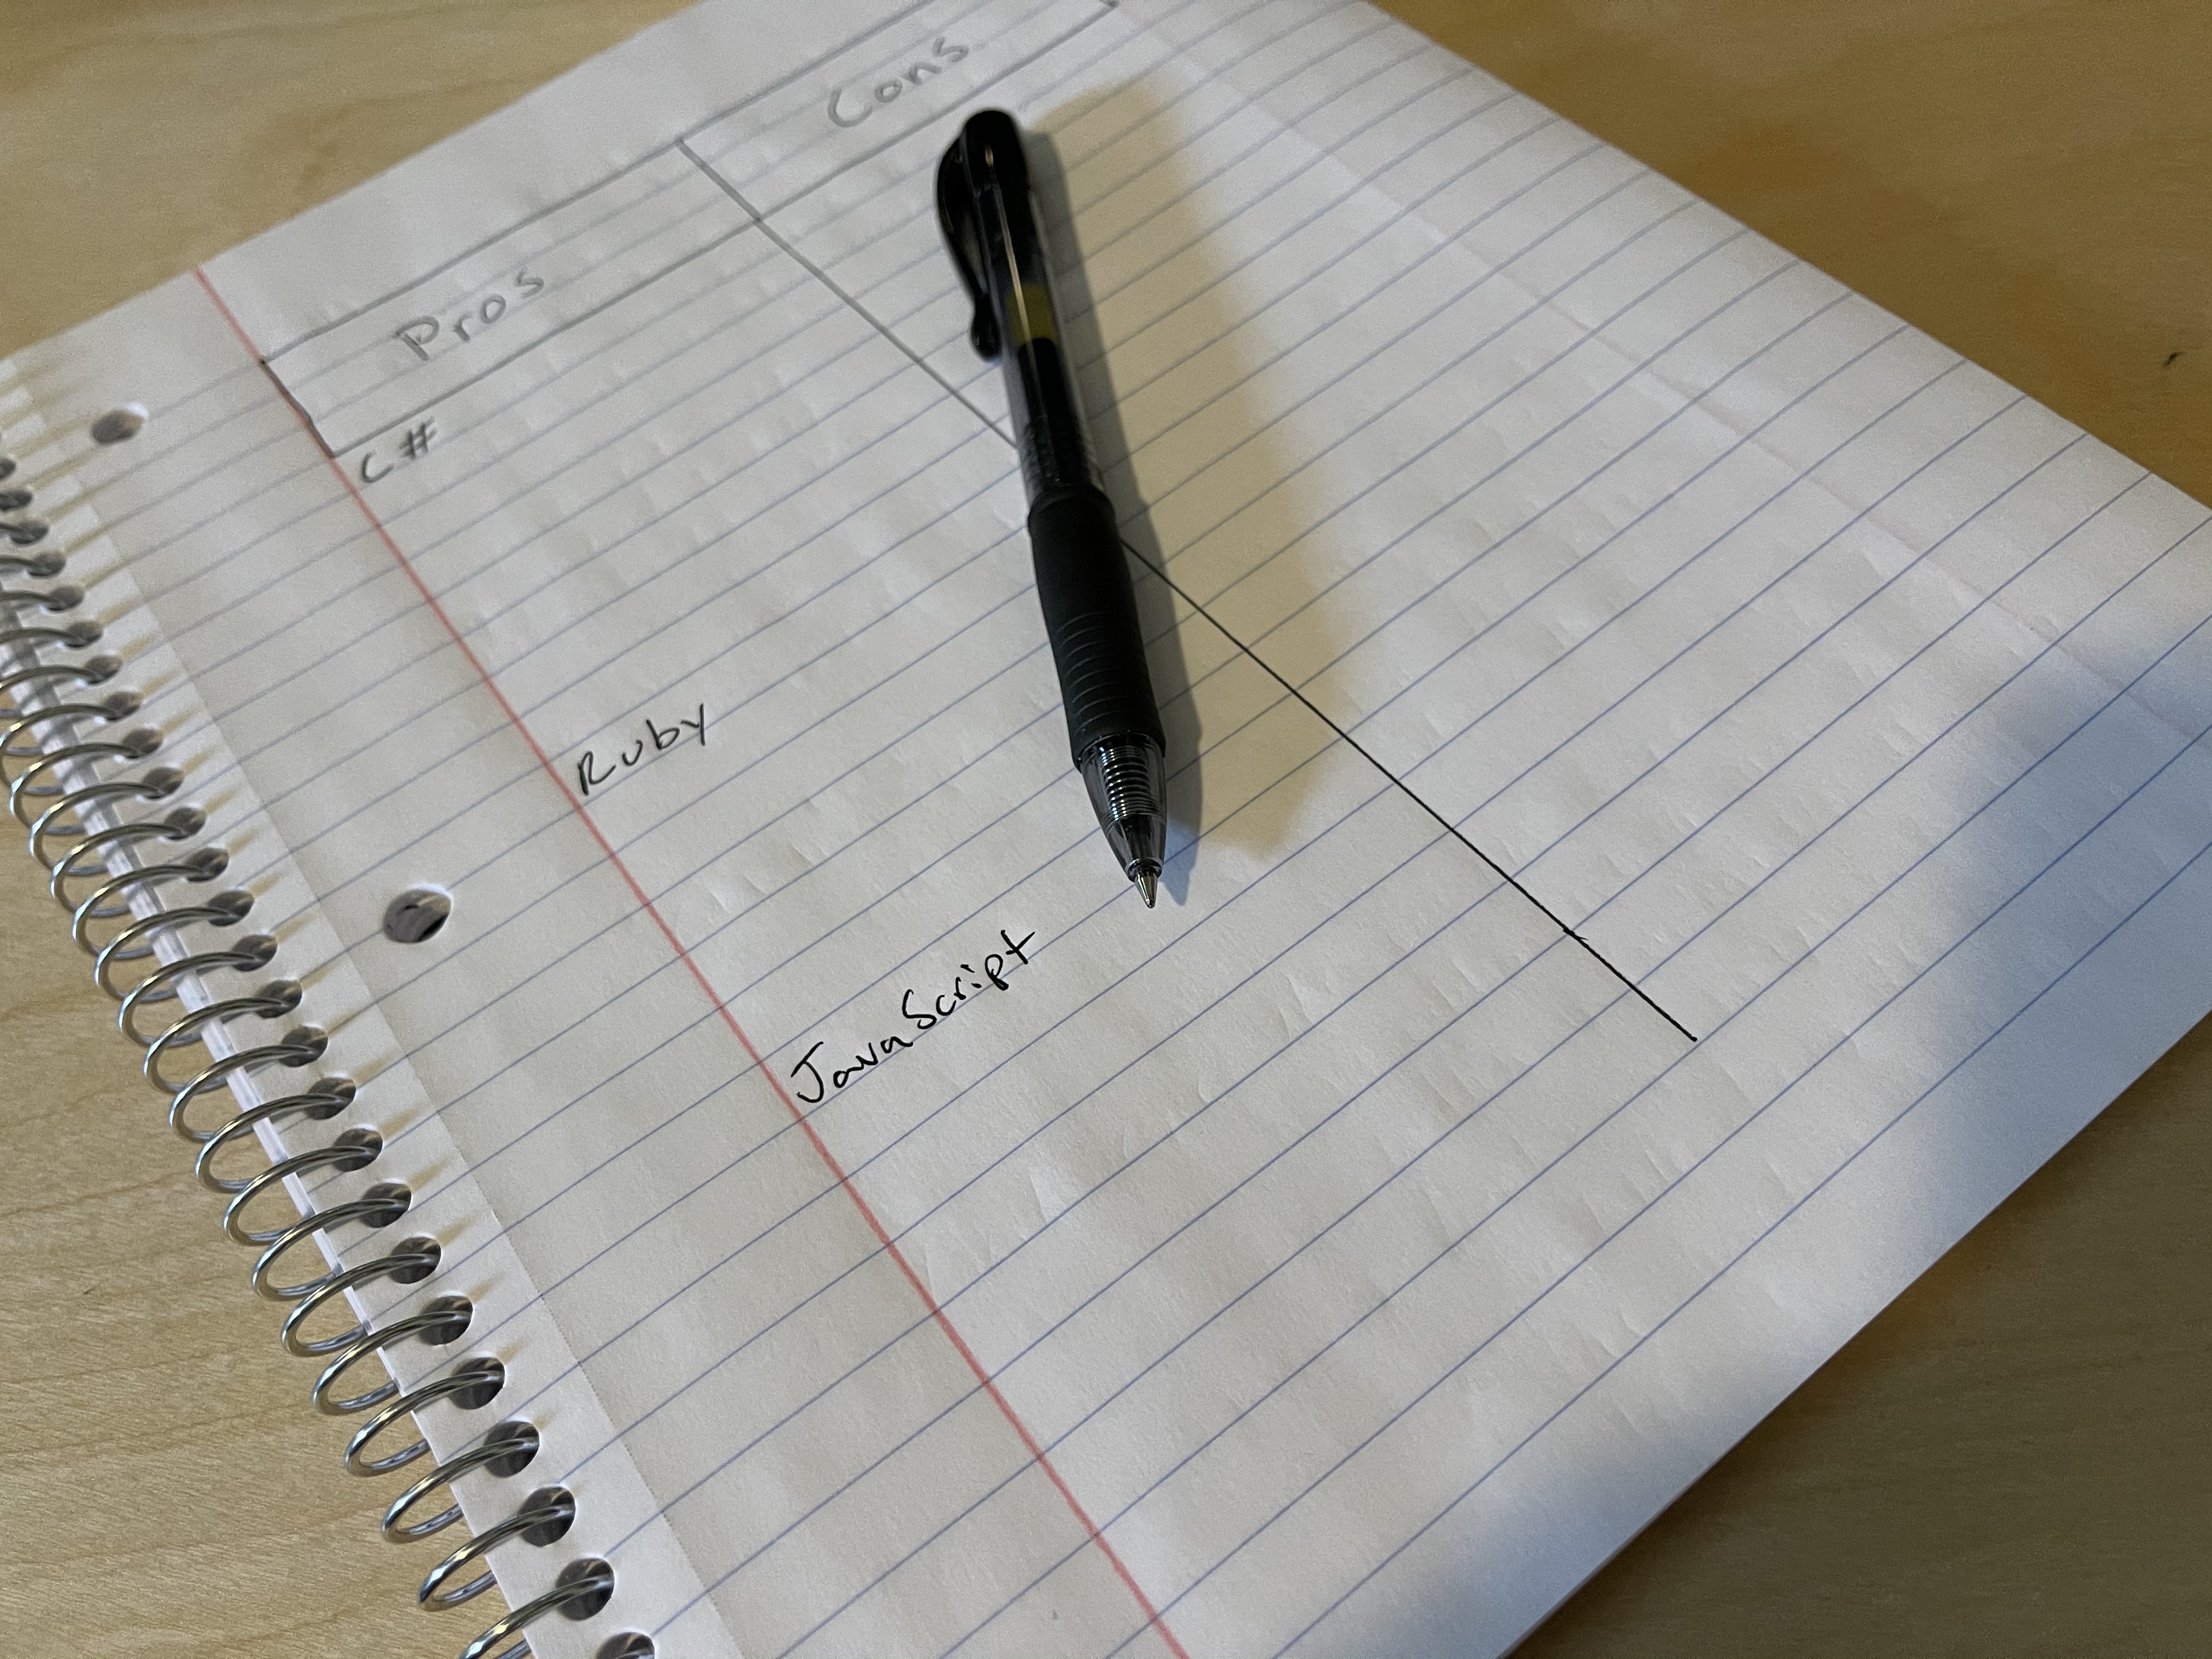 Pros Cons
C#
Ruby
JavaScript